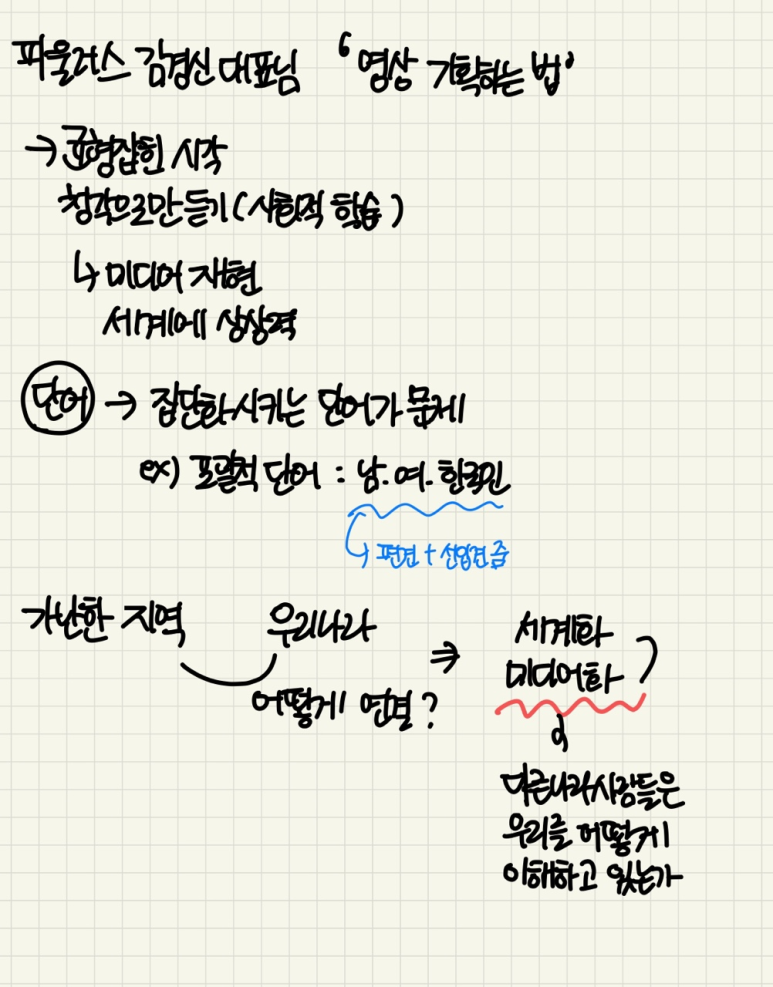 파울러스 김경신 대표님 '영상 기획하는 법'
→ 균형잡힌 시각
창작으로만들기 (사회적 학습)
↳ 미디어 재현
세계에 상상력
단어 → 집단화시키는 단어가 문제
ex) 포괄적 단어 : 남.여.한국인
↳ 편견 + 선입견
가난한 지역 우리나라
어떻게 연결?
⇒ 세계화
미디어화
다른나라사람들은
우리를 어떻게
이해하고 있는가